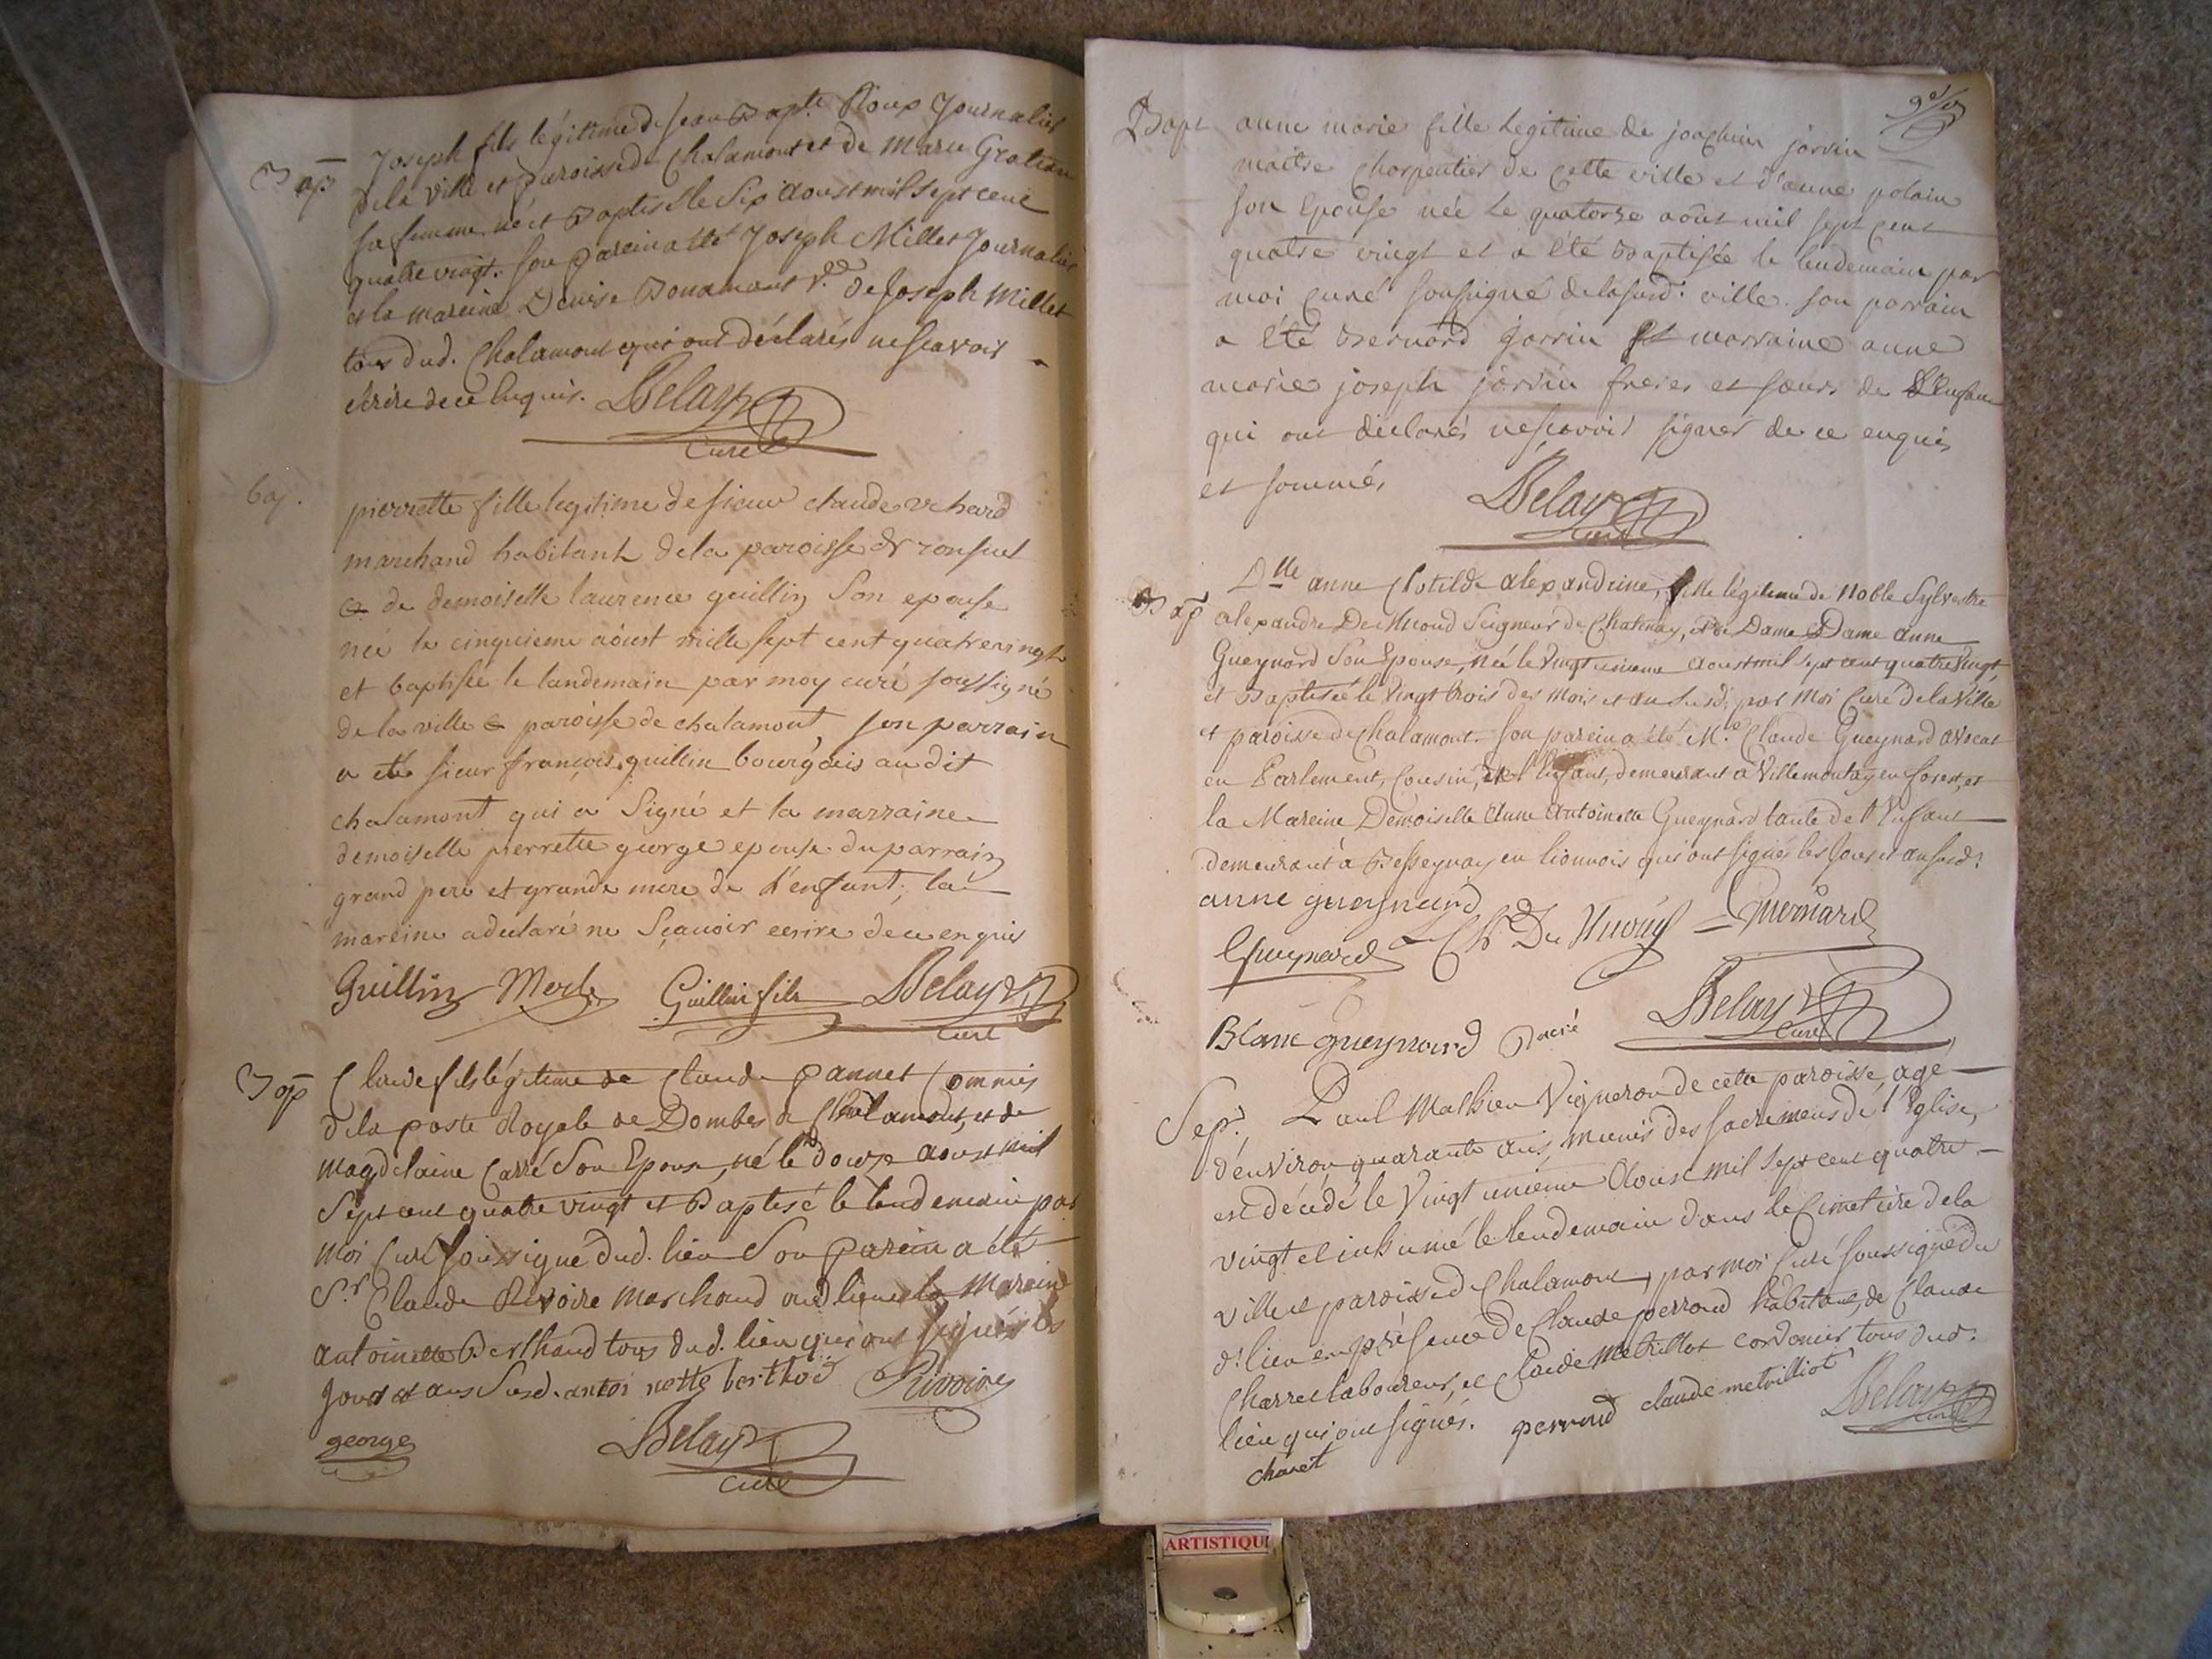 Bap
Joseph fils légitime de Jean Bapt.te Roux Journalier
de la ville et paroisse de Chalamont et de Marie Gratian
sa femme, né et Baptisé le six aoust mil sept cent
quatre vingt. Son parein a été Joseph Millet Journalier
et la mareine Denise Bonamant v.e de Joseph Millet
tous dud. Chalamont qui ont déclarés ne scavoir
écrire de ce Enquis. Delay
curé
bap.
pierrette fille legitime de sieur claude
marchand habitant de la paroisse de ronsuel
& de demoiselle laurence guillin son epouse
née le cinquieme aoust mille sept cent quatrevingt
et baptisée le landemain par moy curé soussigné
de la ville & paroisse de chalamont, son parrain
a eté sieur françois guillin bourgeois au dit
chalamont qui a signé et la marraine
demoiselle pierrette george epouse du parrain
grand pere et grande mere de l'enfant, la
mareine a declaré ne sçavoir ecrire de ce enquis
Guillin Merle Guillin fils Delay
curé
Bap
Claude fils légitime de Claude Pannet Commis
de la poste Royale de Dombes à Chalamont, et de
magdelaine Carré son Epouse, né le douze aoust mil
sept cent quatre vingt et Baptisé le lendemain par
moi Curé soussigné dud. lieu Son Parein a été
S.r Claude Rivoire marchand aud lieu et la Mareine
antoinette Berthaud tous dud. lieu qui ont signés les
jour et an susd. antoi nette berthod Rivoire
george Delay
curé
Bapt
anne marie fille legitime de joachim jorrin
maitre charpentier de cette ville et d'anne polain
son Epouse née le quatorze aôut mil sept cent
quatre vingt et a été Baptisée le lendemain par
moi curé soussigné de la susd. ville. son parrain
a été Bernard jorrin et marraine anne
marie joseph jorrin freres et sœurs de l'Enfant
qui ont declarés ne scavoir signer de ce enquis
et sommés
Delay
curé
Bap
D.lle anne Clotilde alexandrine, fille légitime de Noble Sylvestre
alexandre Seigneur de Chatenay, et de Dame Dame anne
Gueynard Son Epouse, Née le Vingt unieme aoust mil sept cent quatre Vingt,
et Baptisée le Vingt trois des mois et an susd. par Moi Curé de la Ville
et paroisse de Chalamont. Son parein a été M.e Claude Gueynard avocat
en Parlement, Cousin, de l'Enfant, demeurant à Villemontay en forest, et
la Mareine Demoiselle Anne Antoinette Gueynard tante de l'Enfant
demeurant à Bessenay en lionnois qui ont signés les jour et an susd.
anne gueynard
Gueynard
Blanc gueynard Delay
curé
Sep.
Paul Mathieu Vigneron de cette paroisse, agé
d'environ quarante ans, munis des sacremens de l'Eglise,
est décédé le Vingt unieme Aoust mil sept cent quatre
vingt et inhumé le lendemain dans le Cimetière de la
ville et paroisse de Chalamont, par moi Curé soussigné du
d. lieu en présence de Claude perroud habitant, de Claude
Charret laboureur, et Claude Metrillot cordonier tous dud.
lieu qui ont signés. perroud claude metrilliot Delay
curé
charet
ARTISTIQU